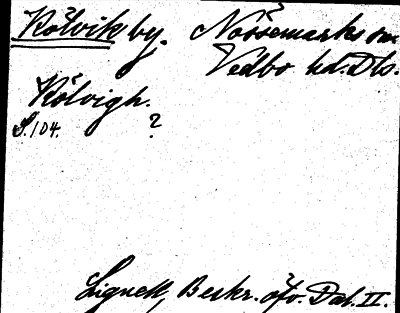 Kölvik by. Nössemarks sn
Vedbo hd. Dls.
Kölvigh.
S. 104. ?
Lignell, Beskr. öfv. Dal. II.